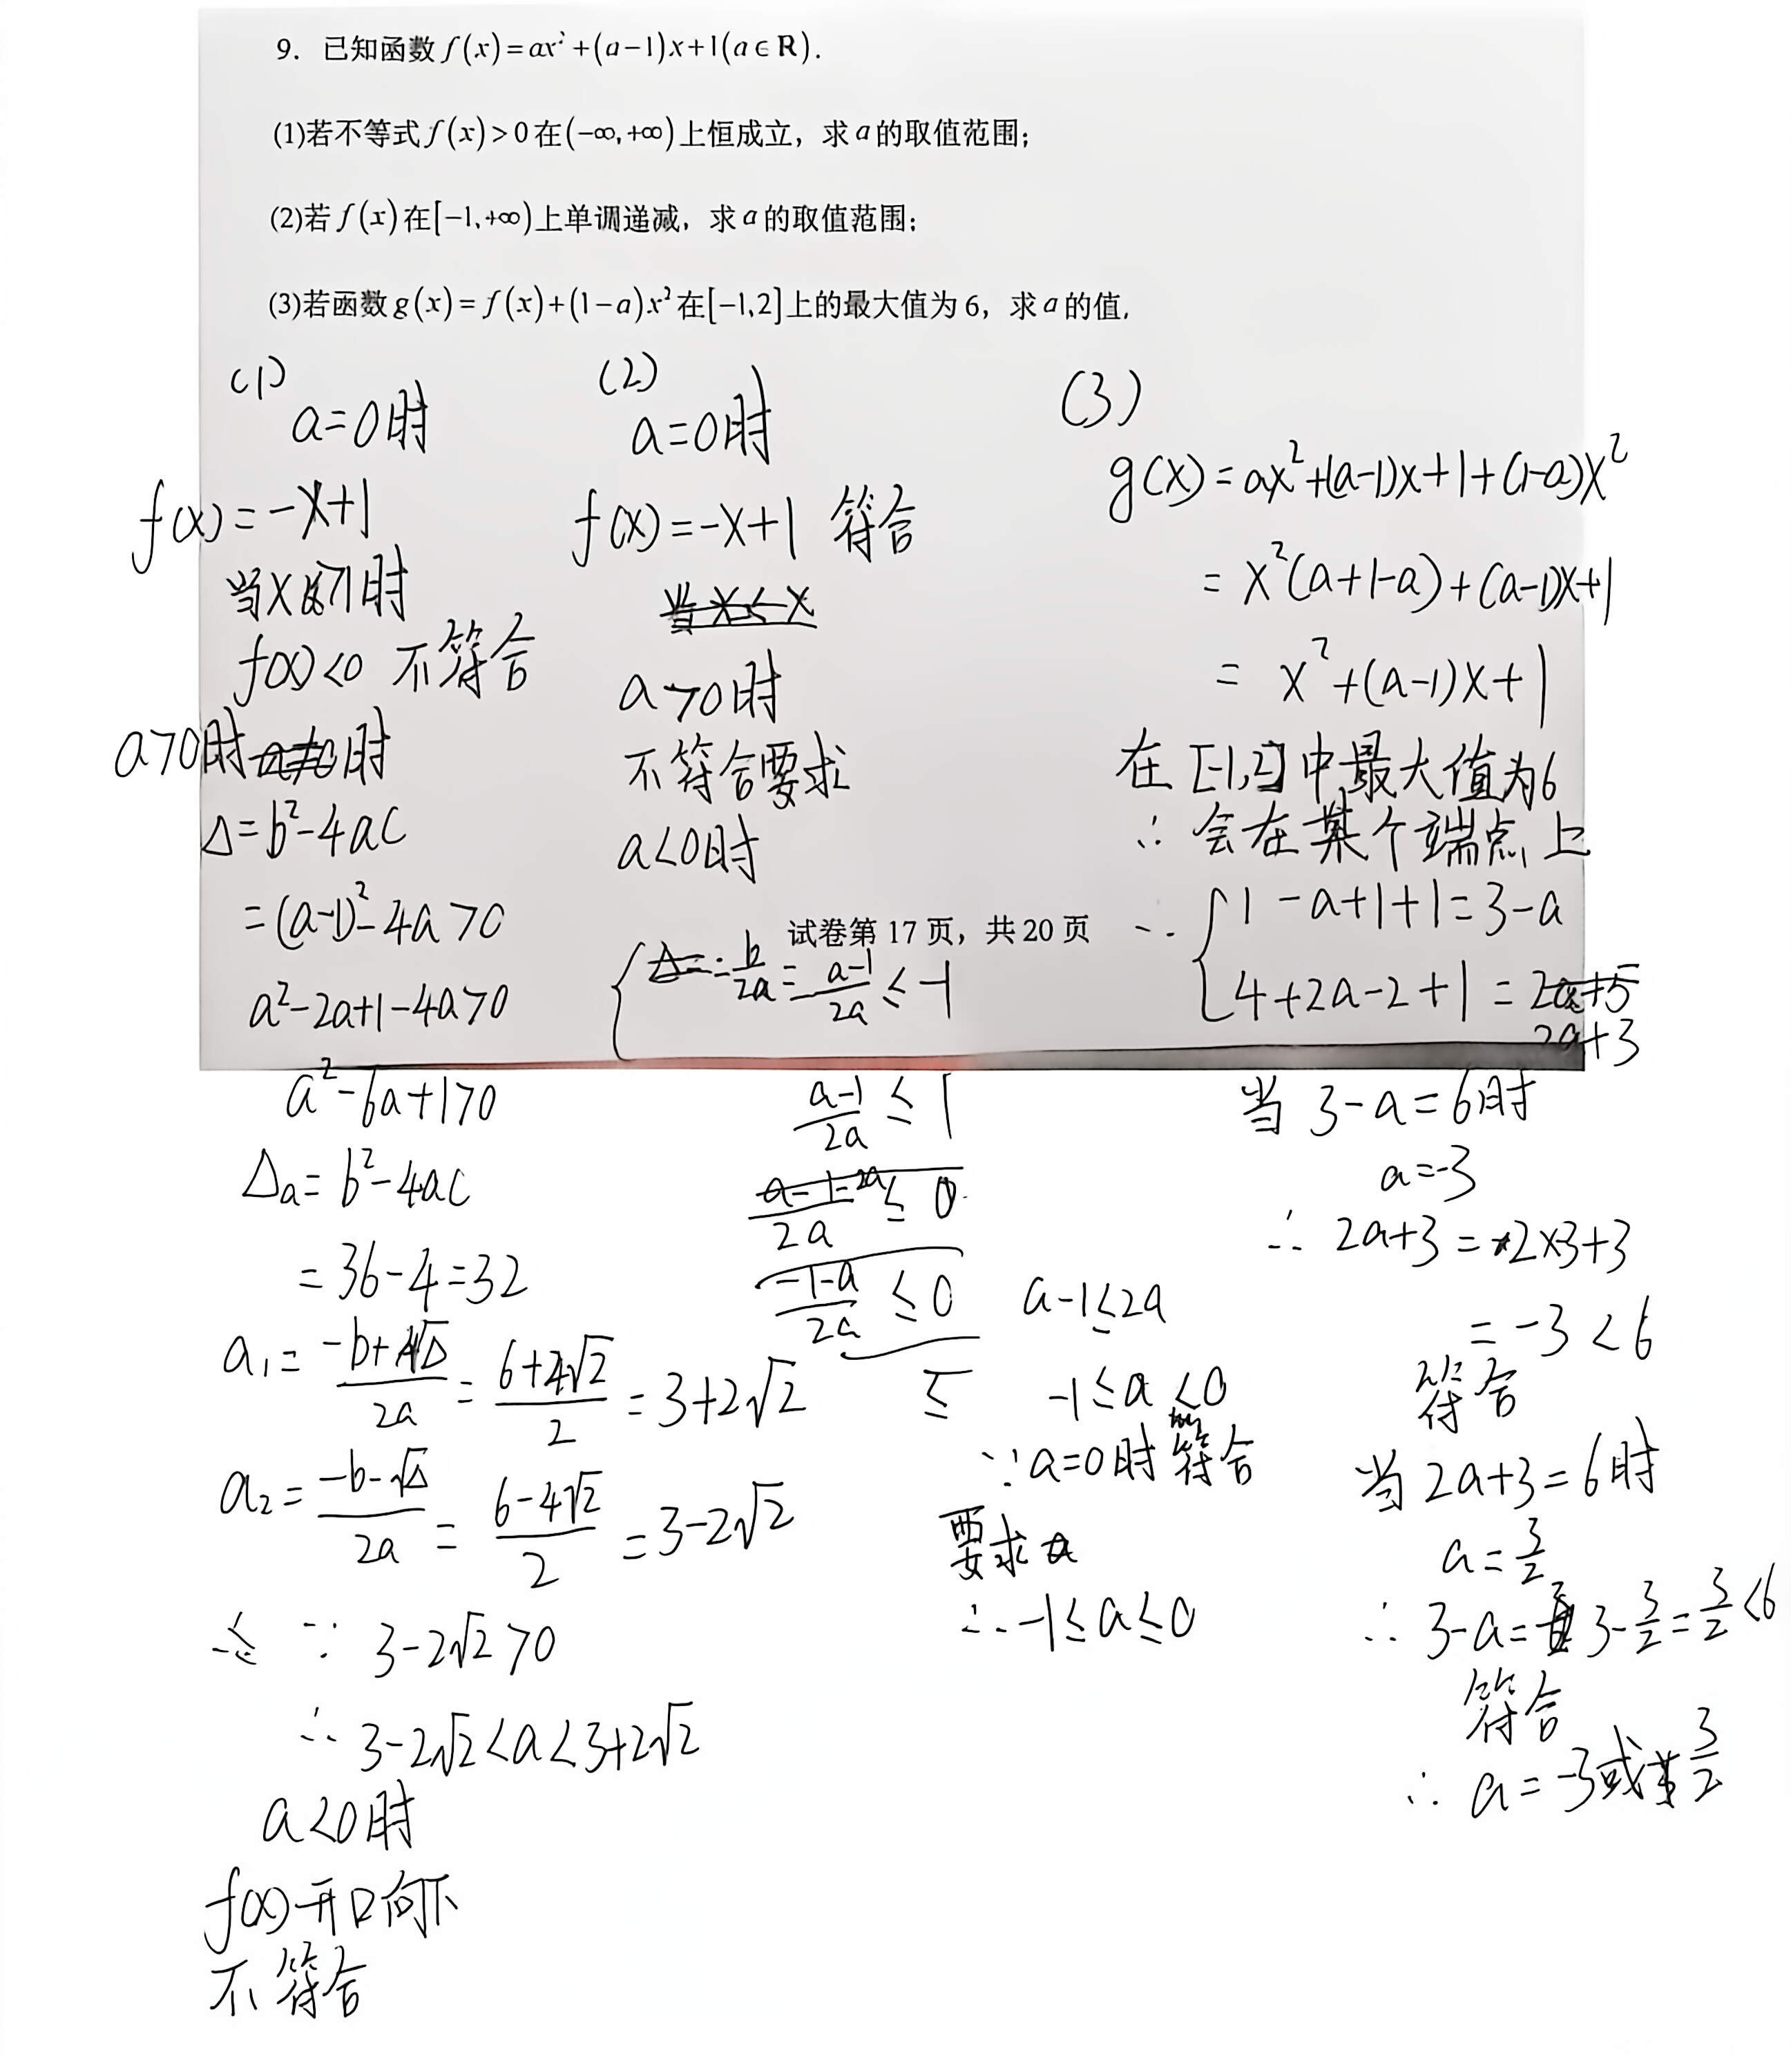 9. 已知函数f(x)=ax²+(a-1)x+1(a∈R).
(1)若不等式f(x)>0在(-∞,+∞)上恒成立，求a的取值范围；
(2)若f(x)在[-1,+∞)上单调递减，求a的取值范围；
(3)若函数g(x)=f(x)+(1-a)x²在[-1,2]上的最大值为6，求a的值.
(1)
a=0时
f(x)=-x+1
当x>1时
f(x)<0 不符合
a>0时 时
Δ=b²-4ac
=(a-1)²-4a>0
a²-2a+1-4a>0
a²-6a+1>0
Δa=b²-4ac
=36-4=32
a₁=(-b+√Δ)/2a=(6+4√2)/2=3+2√2
a₂=(-b-√Δ)/2a=(6-4√2)/2=3-2√2
∵ 3-2√2>0
∴ 3-2√2<a<3+2√2
a<0时
f(x)开口向下
不符合
(2)
a=0时
f(x)=-x+1 符合
当x<x
a>0时
不符合要求
a<0时
{ -b/2a=-(a-1)/2a≤-1
试卷第 17 页，共 20 页
(a-1)/2a≤1
(a-1-2a)/2a≤0
(-1-a)/2a≤0
a-1≤2a
≤
-1≤a<0
∵a=0时符合
要求
∴-1≤a≤0
(3)
g(x)=ax²+(a-1)x+1+(1-a)x²
=x²(a+1-a)+(a-1)x+1
=x²+(a-1)x+1
在[-1,2]中最大值为6
∴会在某个端点上
∴{1-a+1+1=3-a
4+2a-2+1=2a+5
2a+3
当3-a=6时
a=-3
∴2a+3=-2×3+3
=-3<6
符合
当2a+3=6时
a=3/2
∴3-a=3-3/2=3/2<6
符合
∴a=-3或3/2